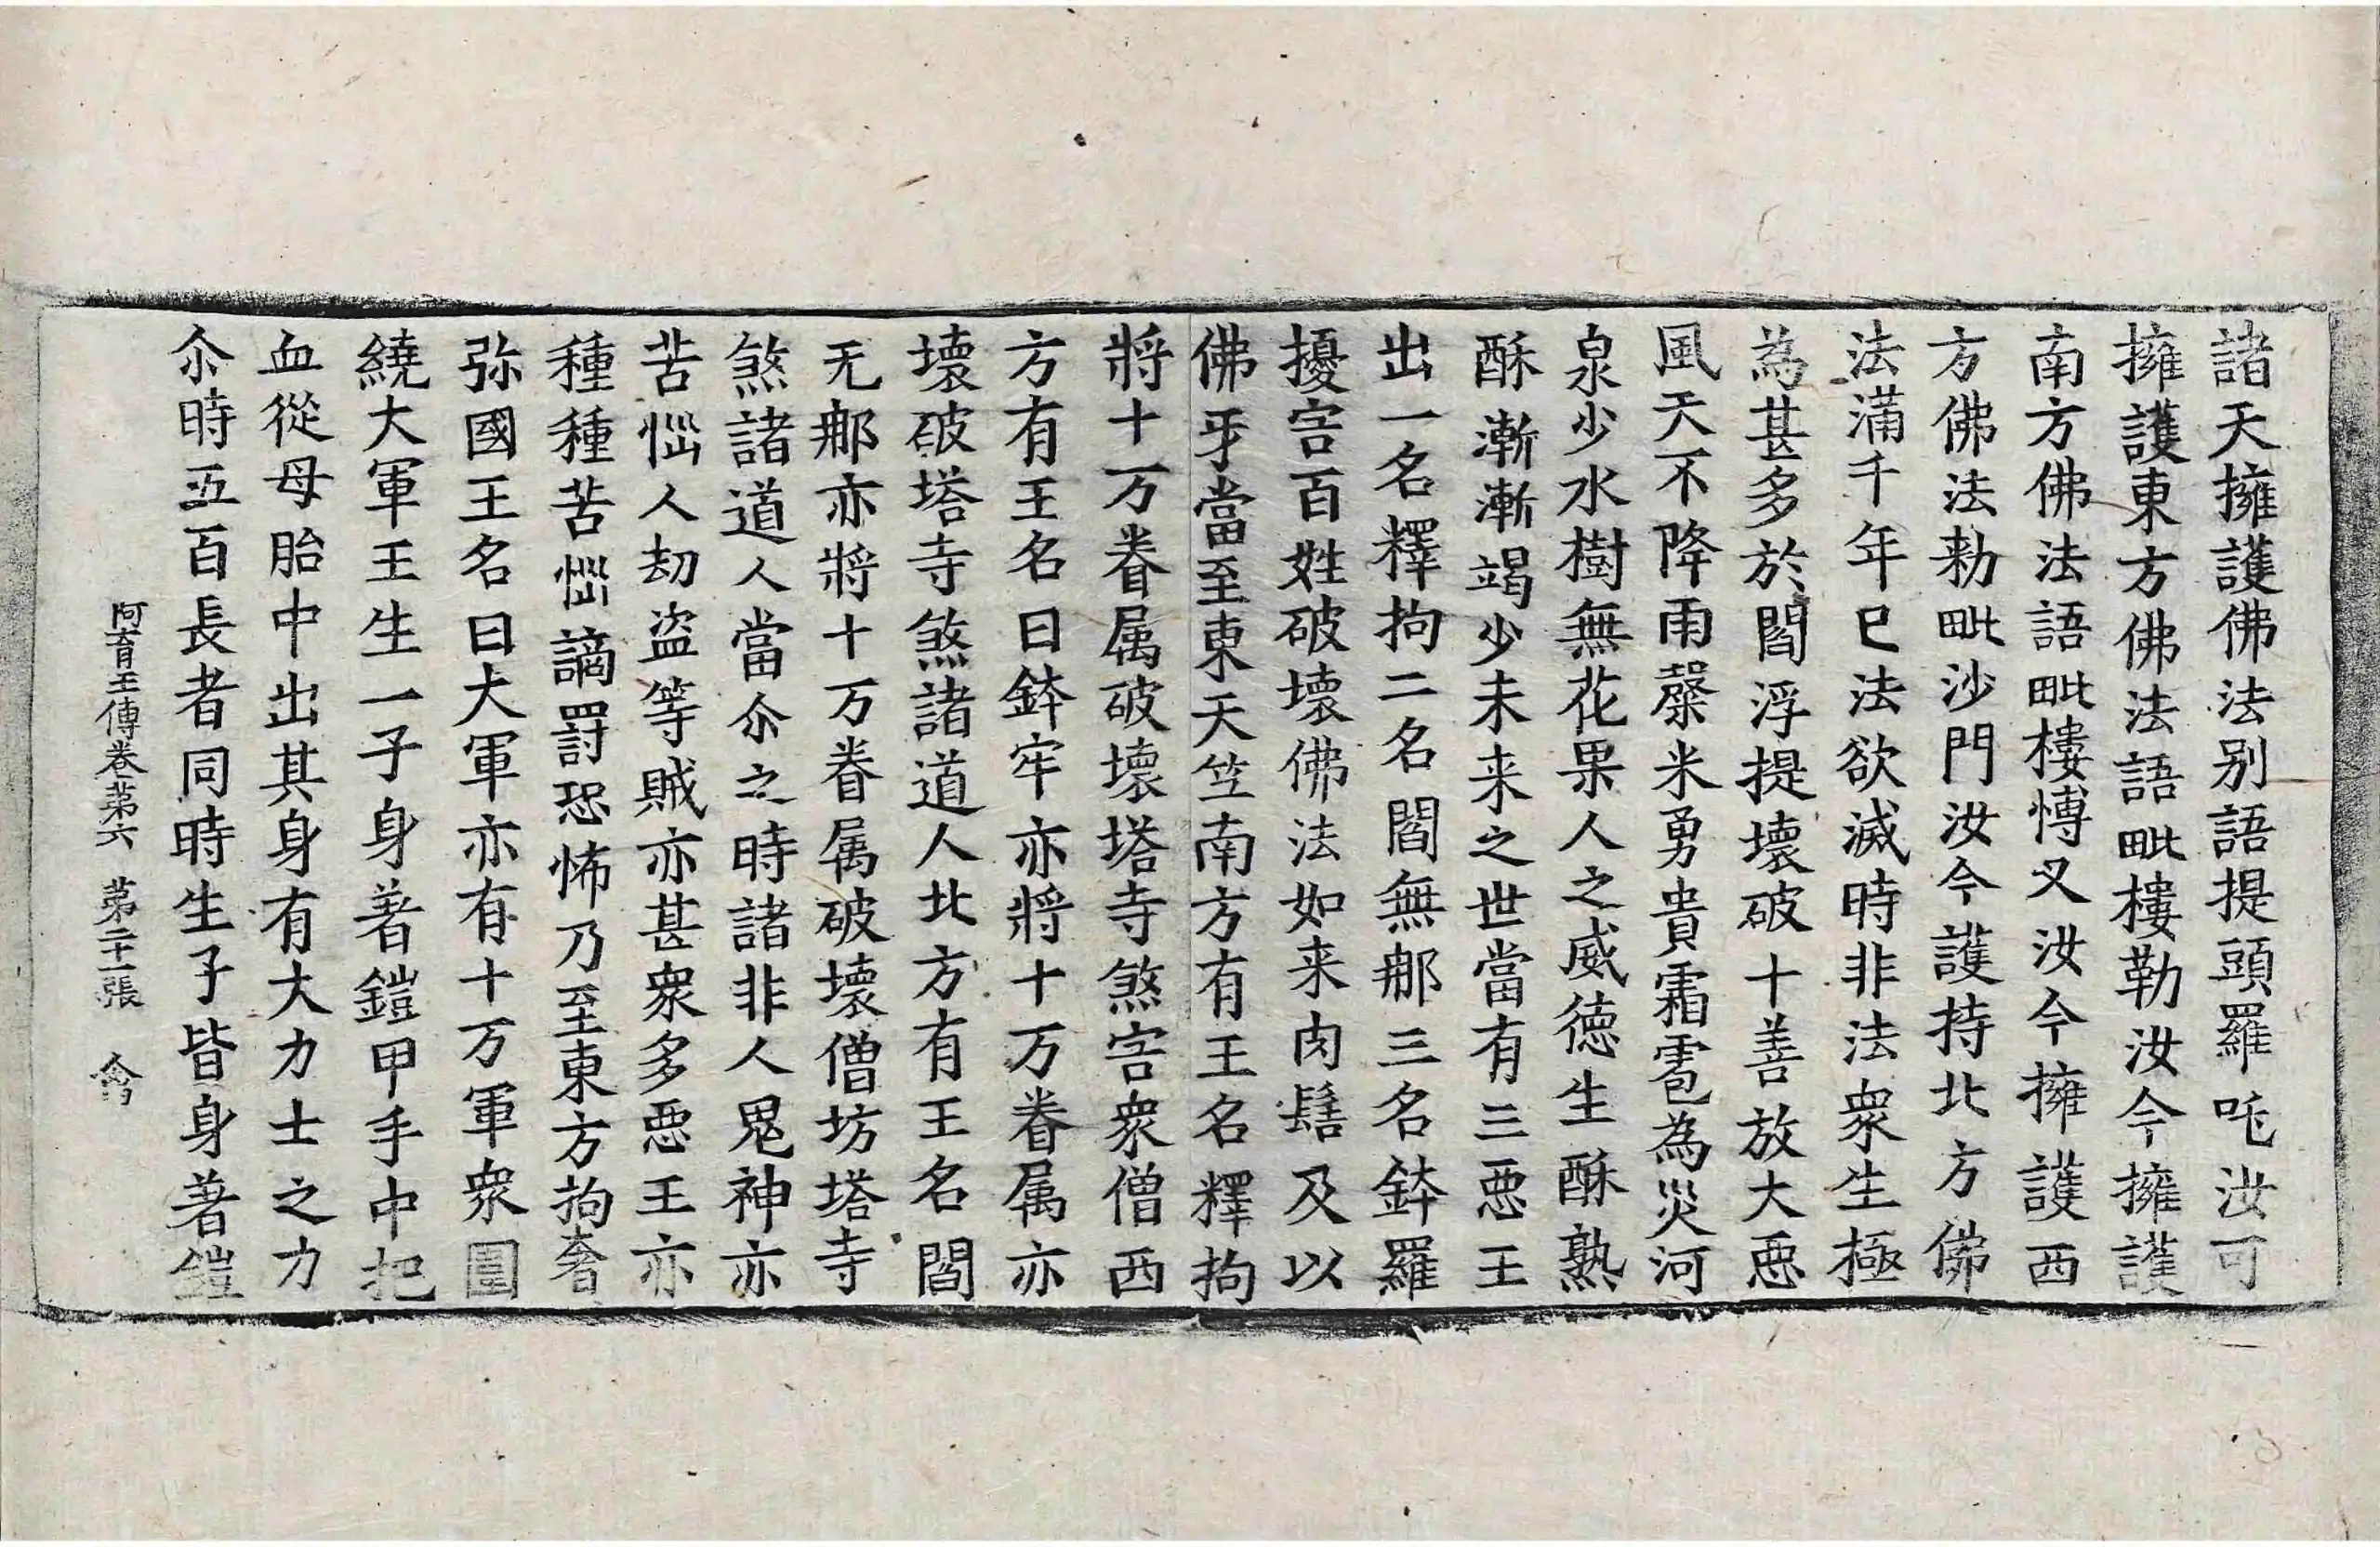 諸天擁護佛法别語提頭羅吒汝可
擁護東方佛法語毗樓勒汝今擁護
南方佛法語毗樓愽叉汝今擁護西
方佛法勑毗沙門汝今護持北方佛
法滿千年已法欲滅時非法衆生極
為甚多於閻浮提壞破十善放大惡
風天不降雨穀米勇貴霜雹為灾河
泉少水樹無花果人之威德生酥熟
酥漸漸竭少未来之世當有三惡王
出一名釋拘二名閻無那三名鉢羅
擾害百姓破壞佛法如来肉髻及以
佛牙當至東天竺南方有王名釋拘
將十万眷属破壞塔寺煞害衆僧西
方有王名曰鉢牢亦將十万眷属亦
壞破塔寺煞諸道人北方有王名閻
无那亦將十万眷属破壞僧坊塔寺
煞諸道人當尒之時諸非人鬼神亦
苦惱人劫盗等賊亦甚衆多惡王亦
種種苦惱謫罸恐怖乃至東方拘奢
弥國王名曰大軍亦有十万軍衆圍
繞大軍王生一子身著鎧甲手中把
血從母胎中出其身有大力士之力
尒時五百長者同時生子皆身著鎧
阿育王傳卷第六 第二十一張